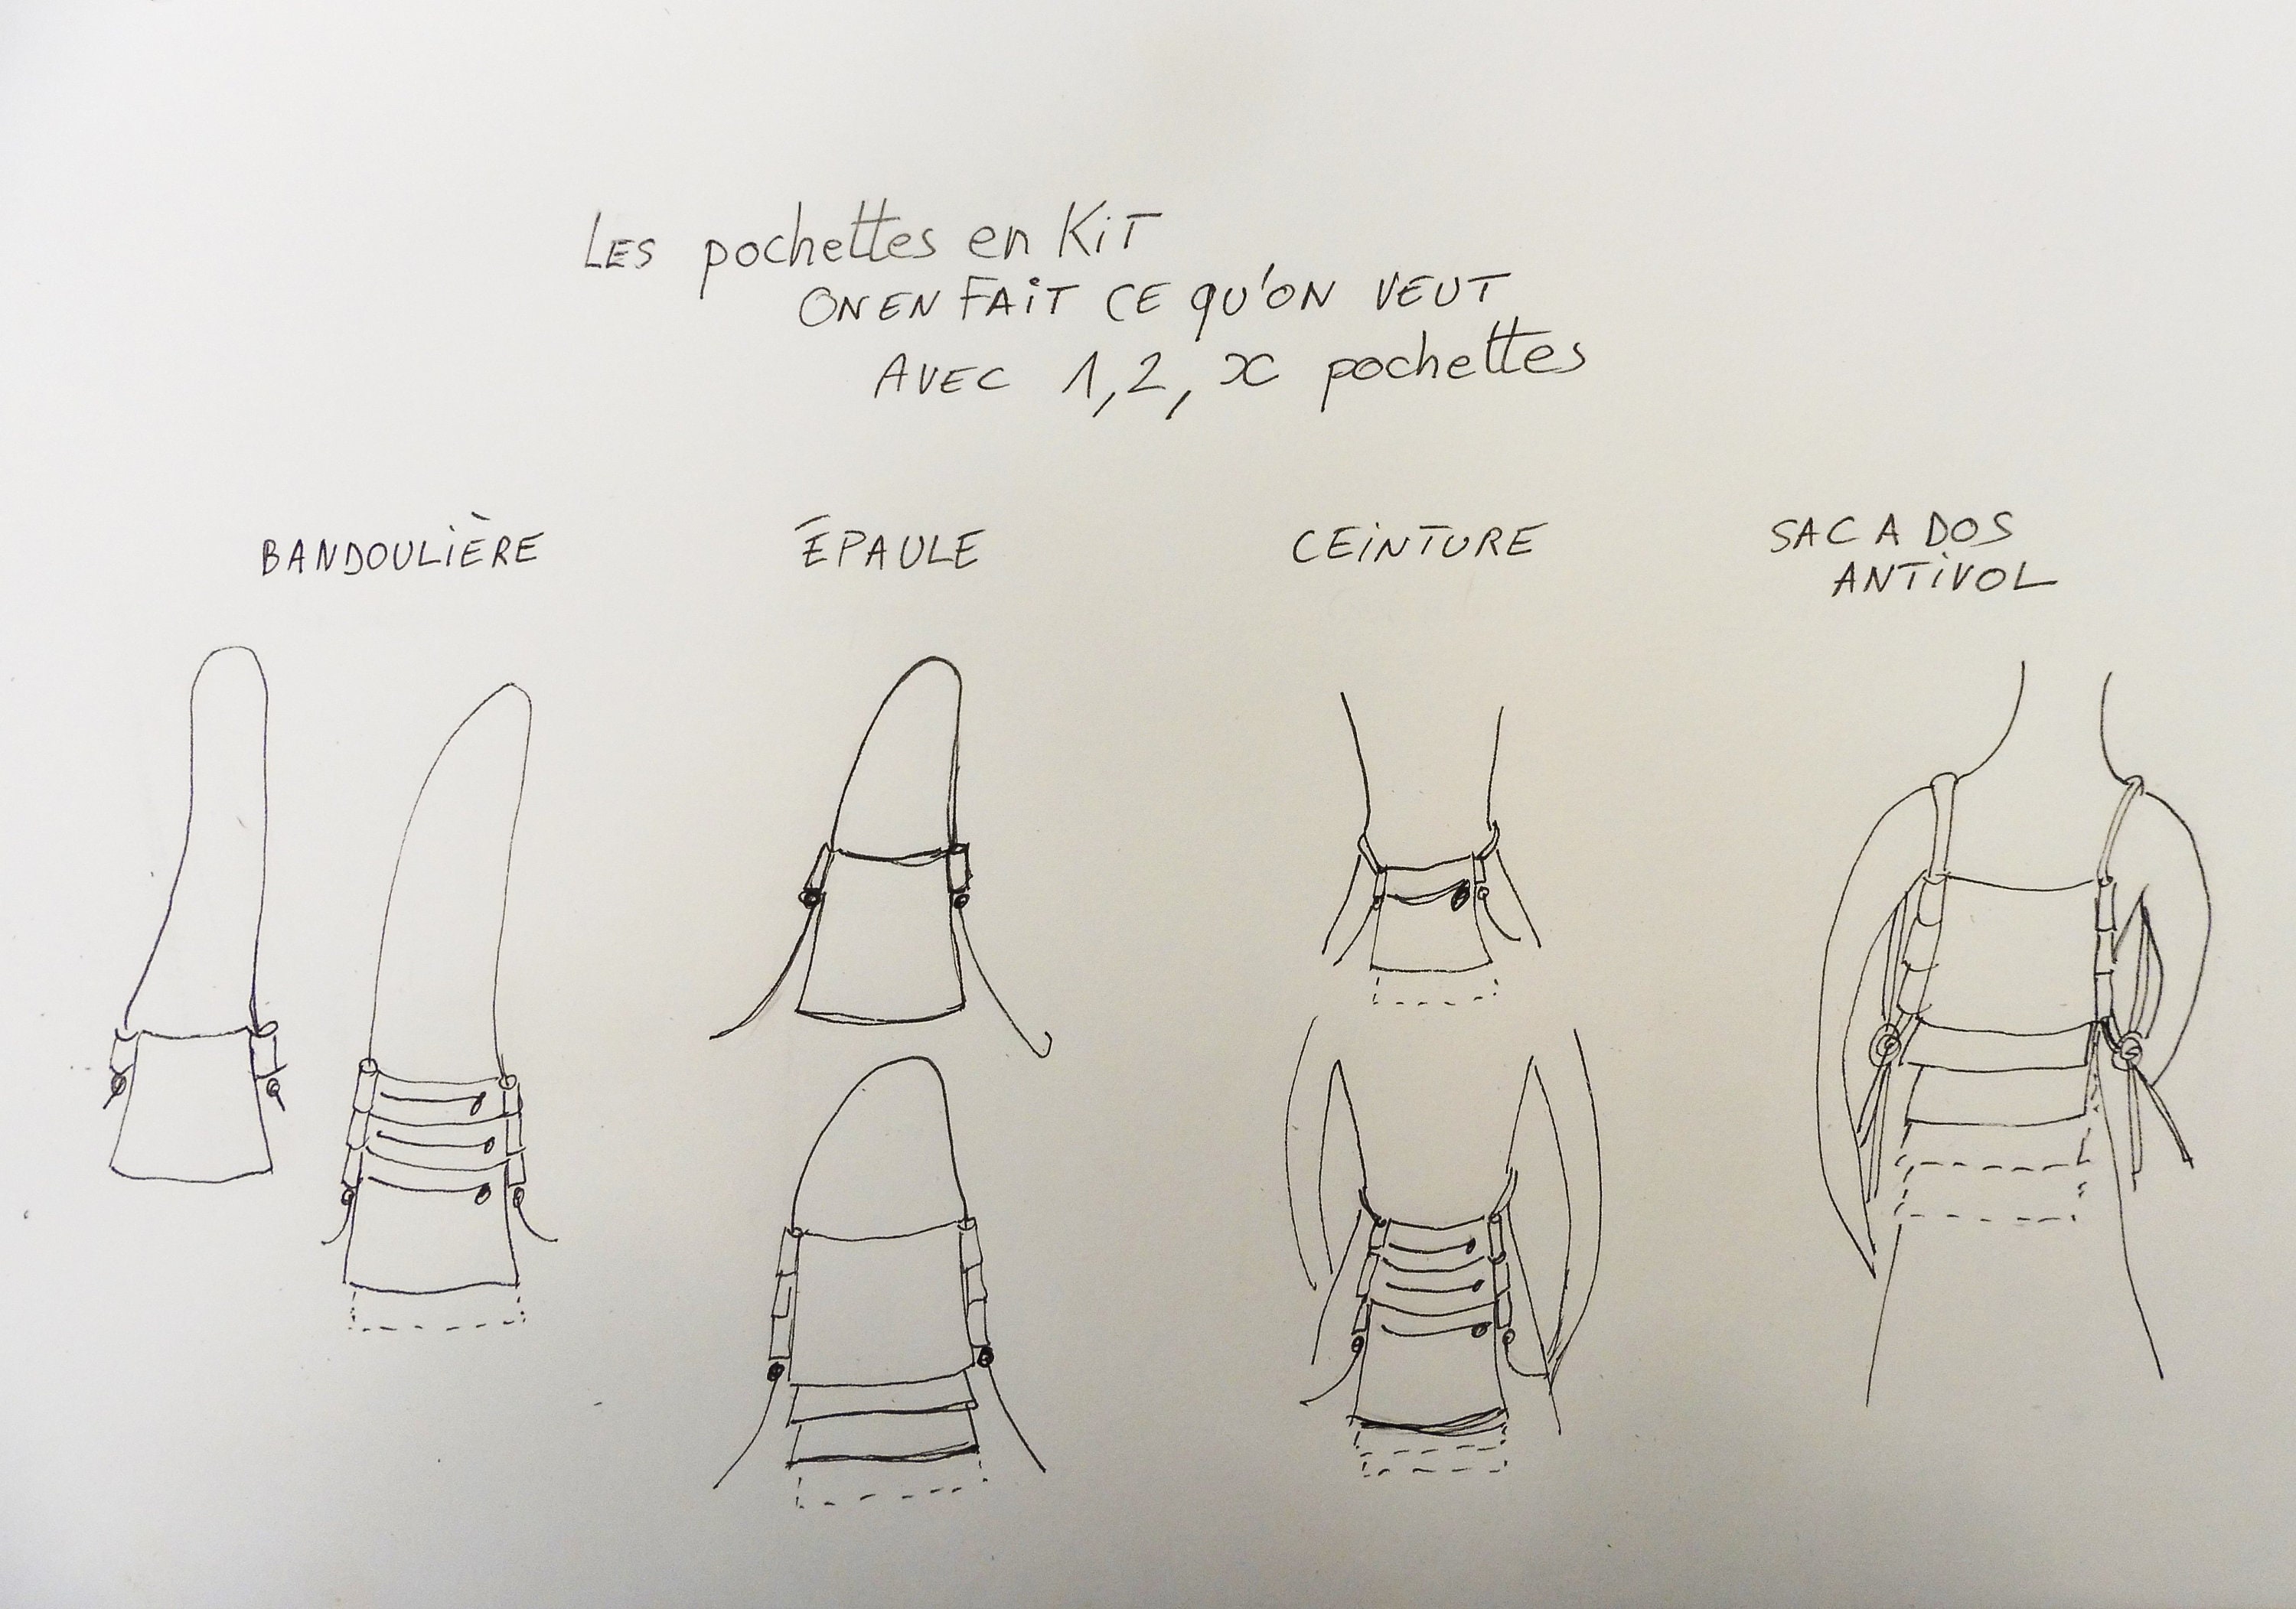 LES pochettes en KiT
ON EN FAiT CE QU'ON VEUT
AVEC 1, 2, x pochettes
BANDOULiÈRE
ÉPAULE
CEiNTURE
SAC A DOS
ANTiVOL